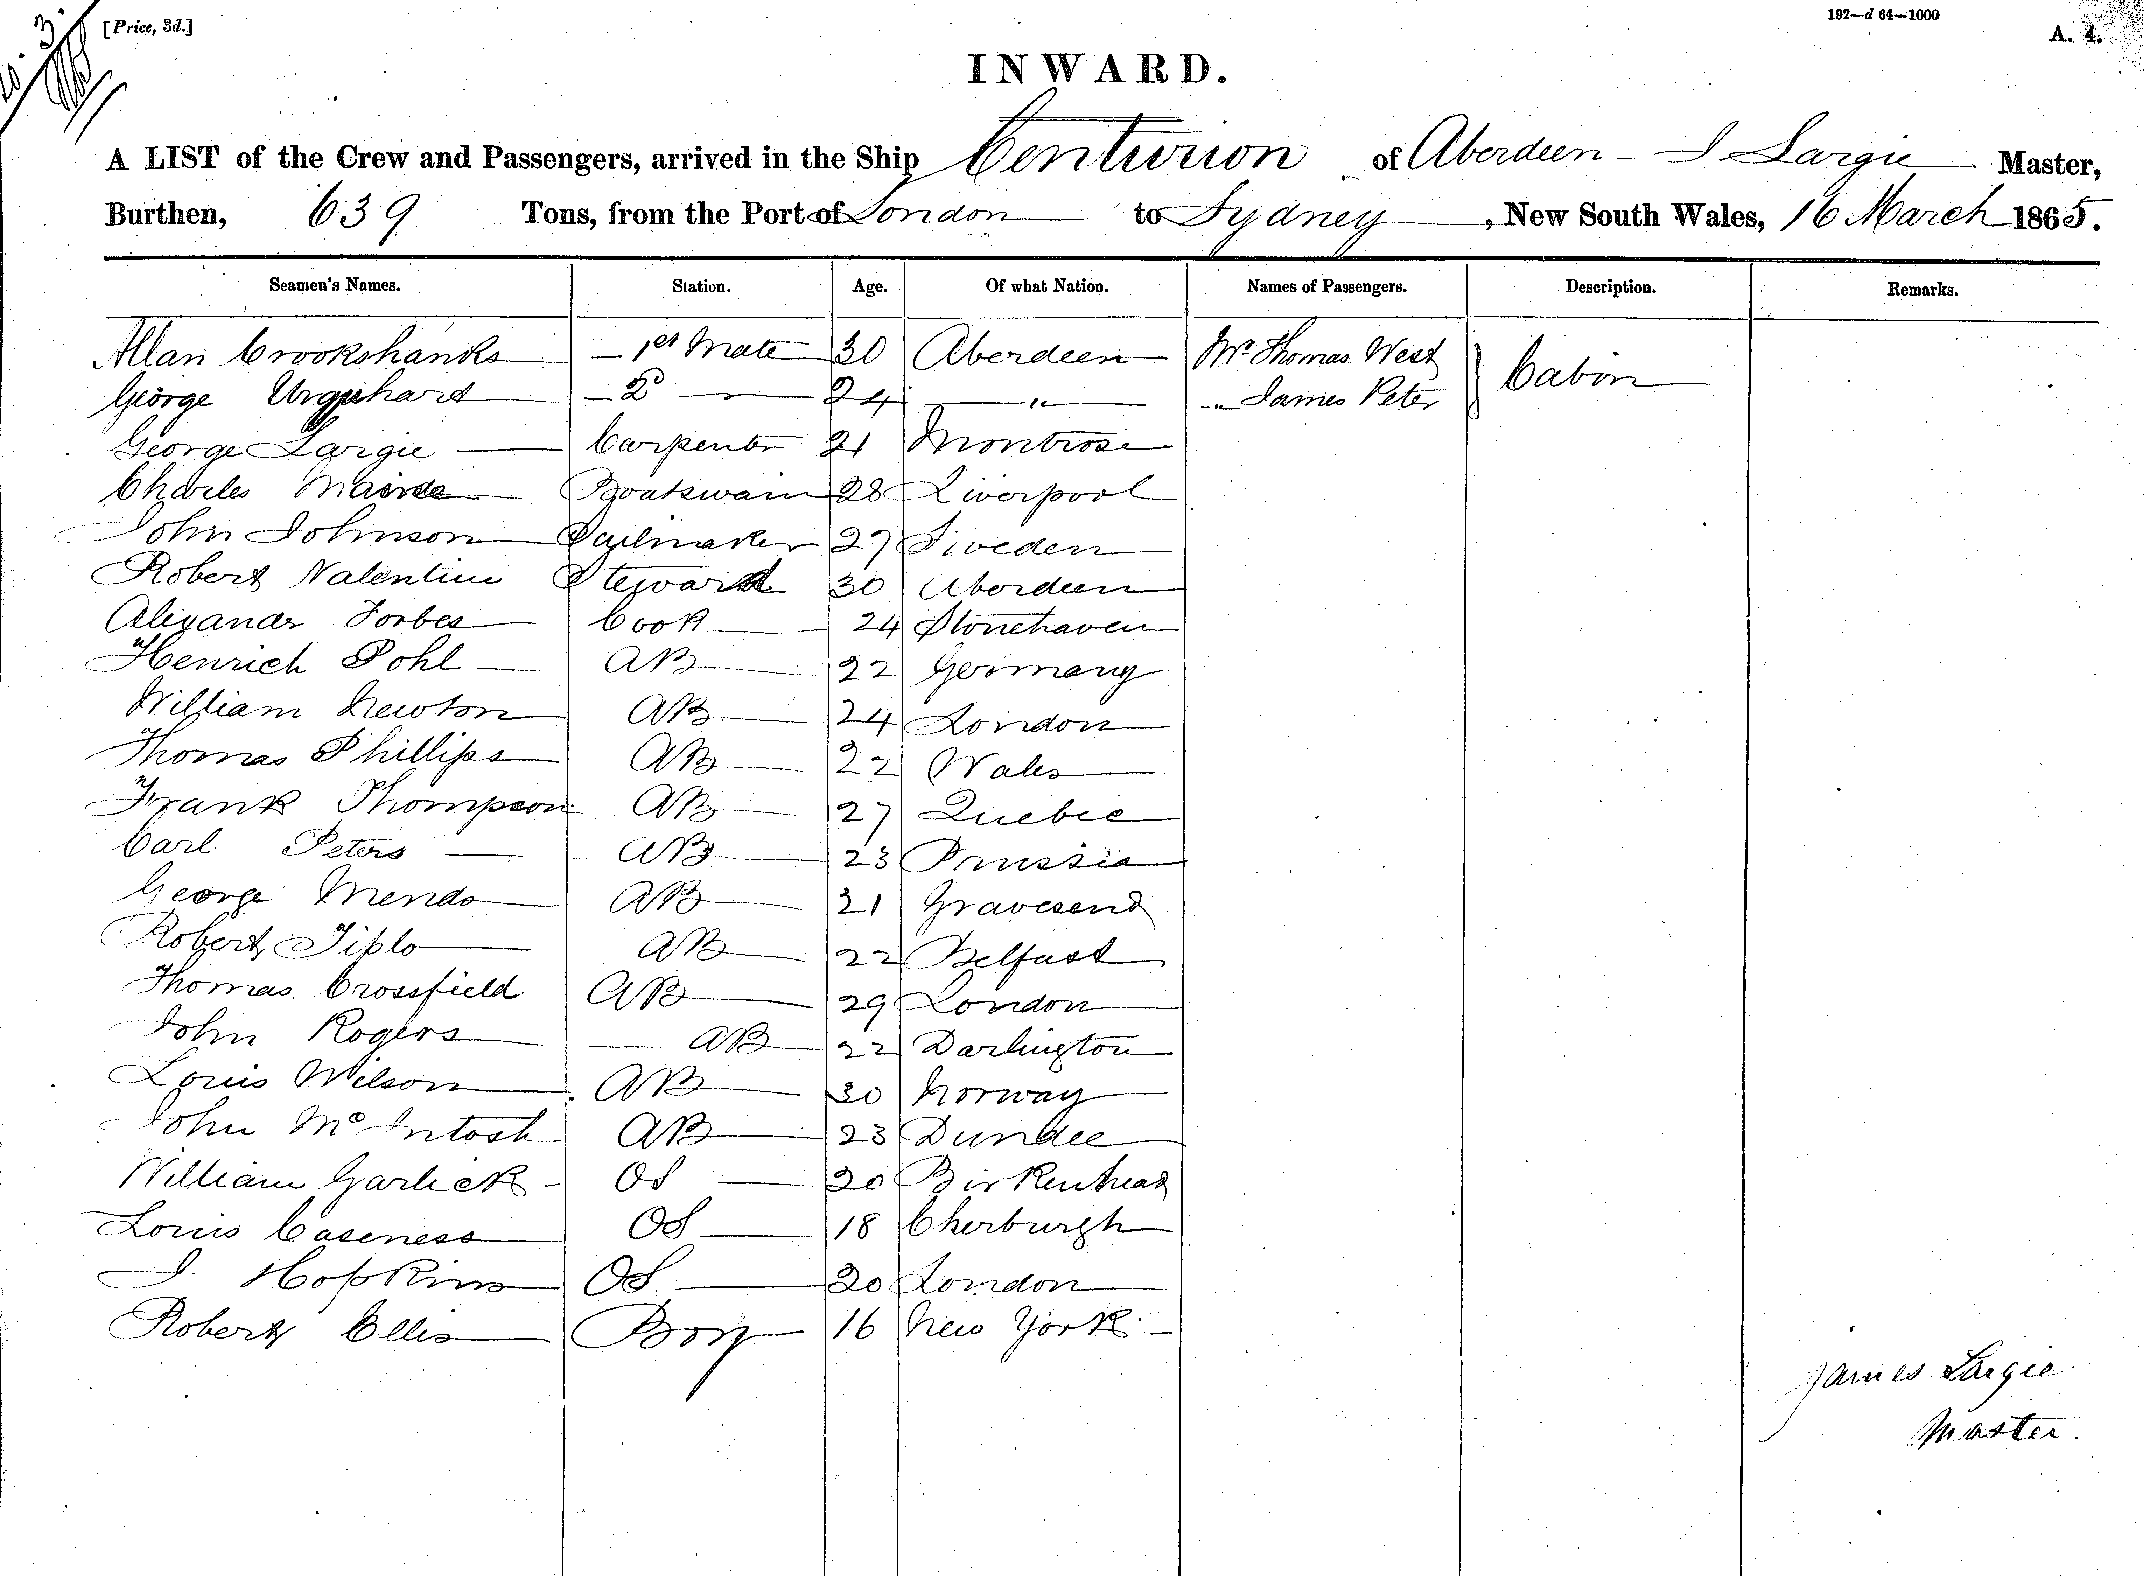 [Price, 3d.]
192—d 64—1000
A. 4.
INWARD.
A LIST of the Crew and Passengers, arrived in the Ship Centurion of Aberdeen - J Largie Master,
Burthen, 639 Tons, from the Port of London to Sydney, New South Wales, 16 March 1865.
Seamen's Names. Station. Age. Of what Nation. Names of Passengers. Description. Remarks.
Allan Crookshanks 1st Mate 30 Aberdeen Mr Thomas West Cabin
George Urquhard 2d 24 " " James Peter
George Largie Carpenter 21 Montrose
Charles Boatswain 28 Liverpool
John Johnson Sailmaker 27 Sweden
Robert Valentine Steward 30 Aberdeen
Alexander Forbes Cook 24 Stonehaven
Henrich Pohl AB 22 Germany
William Newton AB 24 London
Thomas Phillips AB 22 Wales
Frank Thompson AB 27 Quebec
Carl Peters AB 23 Prussia
George Mendo AB 21 Gravesend
Robert Tiplo AB 22 Belfast
Thomas Crossfield AB 29 London
John Rogers AB 22 Darlington
Louis Wilson AB 30 Norway
John McIntosh AB 23 Dundee
William Garlick OS 20 Birkenhead
Louis Caseness OS 18 Cherburgh
J Hopkins OS 20 London
Robert Ellis Boy 16 New York
James Largie
Master.